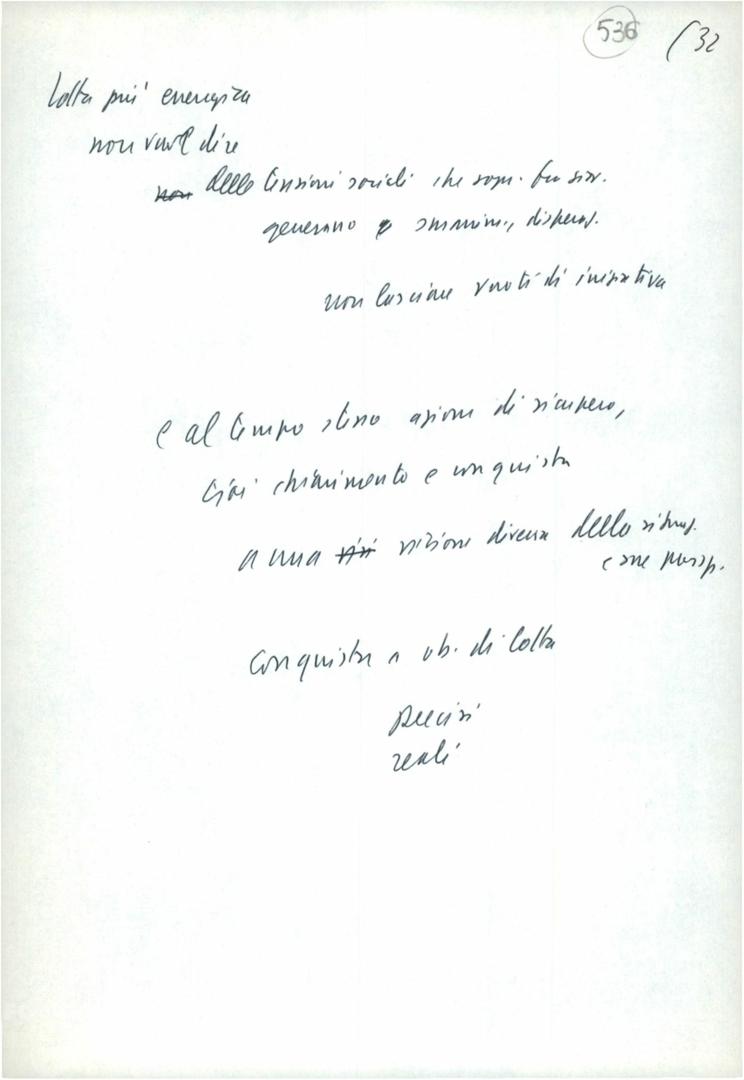 536 (32
Lotta più energica
non vuol dire
non delle tensioni sociali che sopr. fra giov.
generano e smarrim., disperaz.
non lasciare vuoti di iniziativa
e al tempo stesso azione di ricupero,
cioè chiarimento e conquista
a una visione diversa della situaz.
e sue prosp.
Conquista a ob. di lotta
precisi
reali